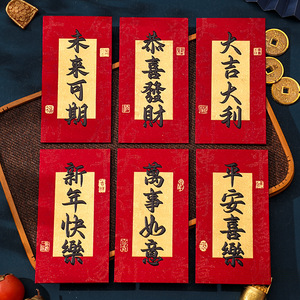 未來可期
恭喜發財
大吉大利
新年快樂
萬事如意
平安喜樂